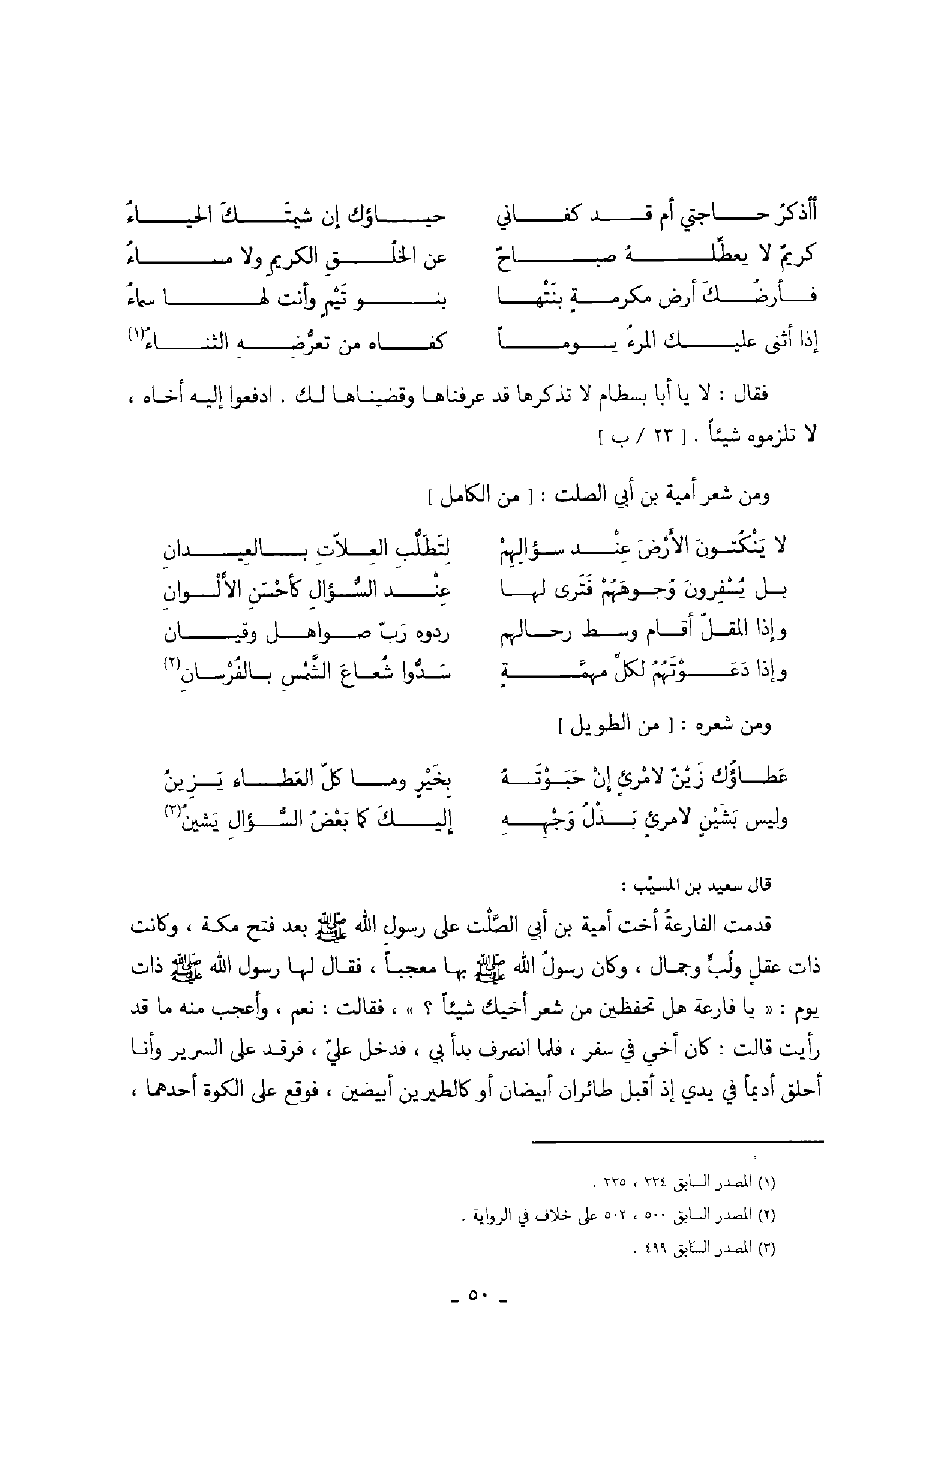 أأذكرُ حاجتي أم قد كفاني حياؤك إن شيمتَكَ الحياءُ
كريمٌ لا يعطّلهُ صباحٌ عن الخُلُقِ الكريم ولا مساءُ
فأرضُكَ أرض مكرمةٍ بنَتْها بنو تَيْمٍ وأنت لها سماءُ
إذا أثنى عليك المرءُ يوماً كفاه من تعرُّضه الثناءُ(١)
فقال : لا يا أبا بسطام لا تذكرها قد عرفناها وقضيناها لك . ادفعوا إليه أخاه ،
لا تلزموه شيئاً . [ ٢٣ / ب ]
ومن شعر أمية بن أبي الصلت : [ من الكامل ]
لا يَنْكُتونَ الأرْضَ عِنْد سؤالِهِمْ لتَطَلُّبِ العلاّتِ بالعيدانِ
بل يُسْفِرونَ وُجوهَهُمْ فَتَرى لها عِنْد السُّؤالِ كأحْسَنِ الألْوانِ
وإذا المقلّ أقام وسط رحالهم ردوه رَبّ صواهلٍ وقيانِ
وإذا دَعَوْتَهُمُ لكلِّ مهمَّةٍ سَدُّوا شُعاعَ الشَّمْسِ بالفُرْسانِ(٢)
ومن شعره : [ من الطويل ]
عَطاؤُك زَيْنٌ لامْرئٍ إنْ حَبَوْتَهُ بخَيْرٍ وما كلّ العَطاء يَزينُ
وليس بشَيْنٍ لامرئٍ بَذْلُ وَجْهِهِ إليكَ كما بَعْضُ السُّؤالِ يَشينُ(٣)
قال سعيد بن المسيّب :
قدمت الفارعةُ أخت أمية بن أبي الصَّلْت على رسول الله ﷺ بعد فتح مكة ، وكانت
ذات عقلٍ ولُبٍّ وجمال ، وكان رسولُ الله ﷺ بها معجباً ، فقال لها رسول الله ﷺ ذات
يوم : « يا فارعة هل تحفظين من شعر أخيك شيئاً ؟ » ، فقالت : نعم ، وأعجب منه ما قد
رأيت قالت : كان أخي في سفر ، فلما انصرف بدأ بي ، فدخل عليّ ، فرقد على السرير وأنا
أحلق أديماً في يدي إذ أقبل طائران أبيضان أو كالطيرين أبيضين ، فوقع على الكوة أحدهما ،
(١) المصدر السابق ٣٣٤ ، ٣٣٥ .
(٢) المصدر السابق ٥٠٠ ، ٥٠٢ على خلاف في الرواية .
(٣) المصدر السابق ٤٩٩ .
_ ٥٠ _